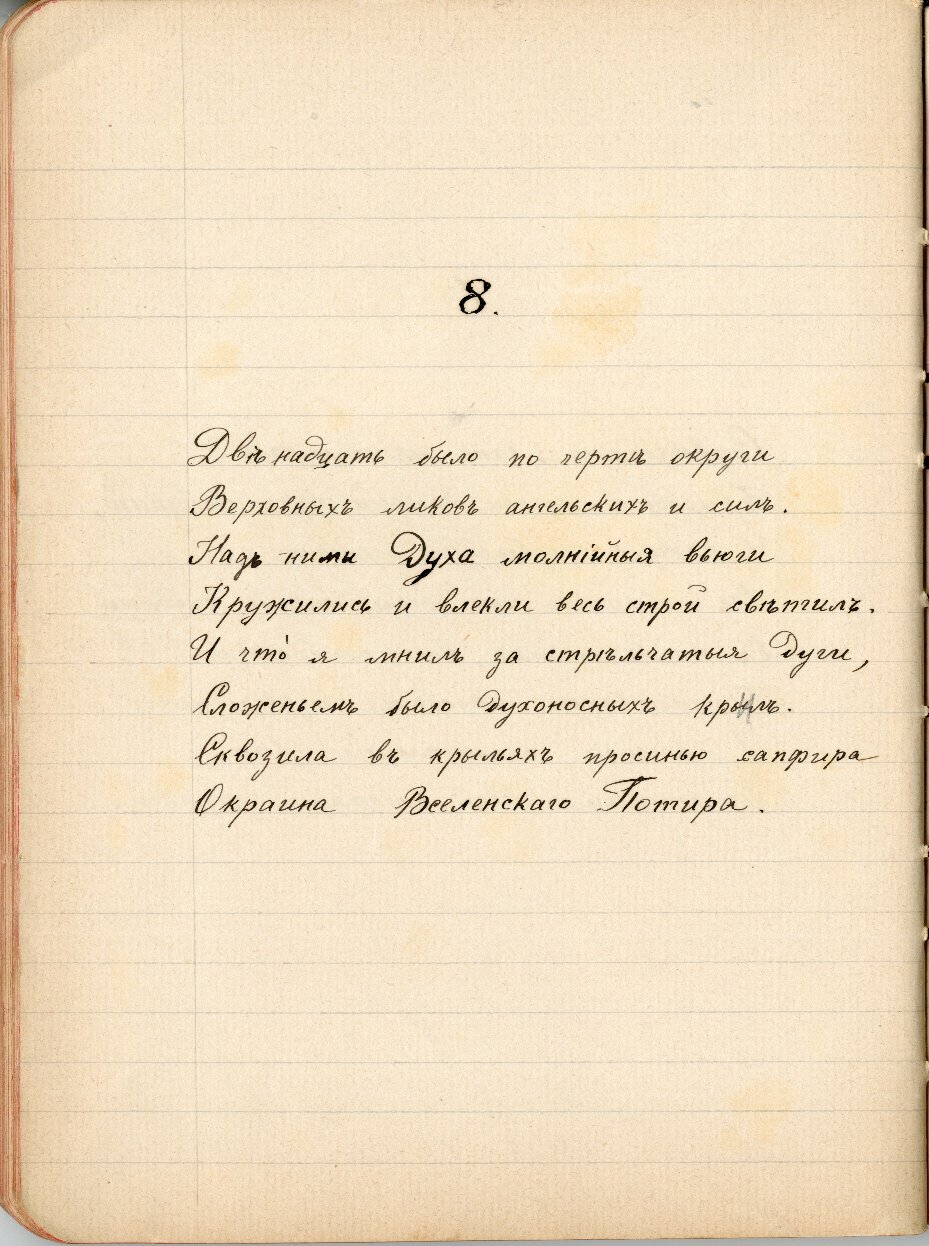 8.
Двѣнадцать было по чертѣ округи
Верховныхъ ликовъ ангельскихъ и силъ.
Надъ ними Духа молнійныя вьюги
Кружились и влекли весь строй свѣтилъ.
И что́ я мнилъ за стрѣльчатыя Дуги,
Сложеньемъ было Духоносныхъ крылъ.
Сквозила въ крыльяхъ просинью сапфира
Окраина Вселенскаго Потира.